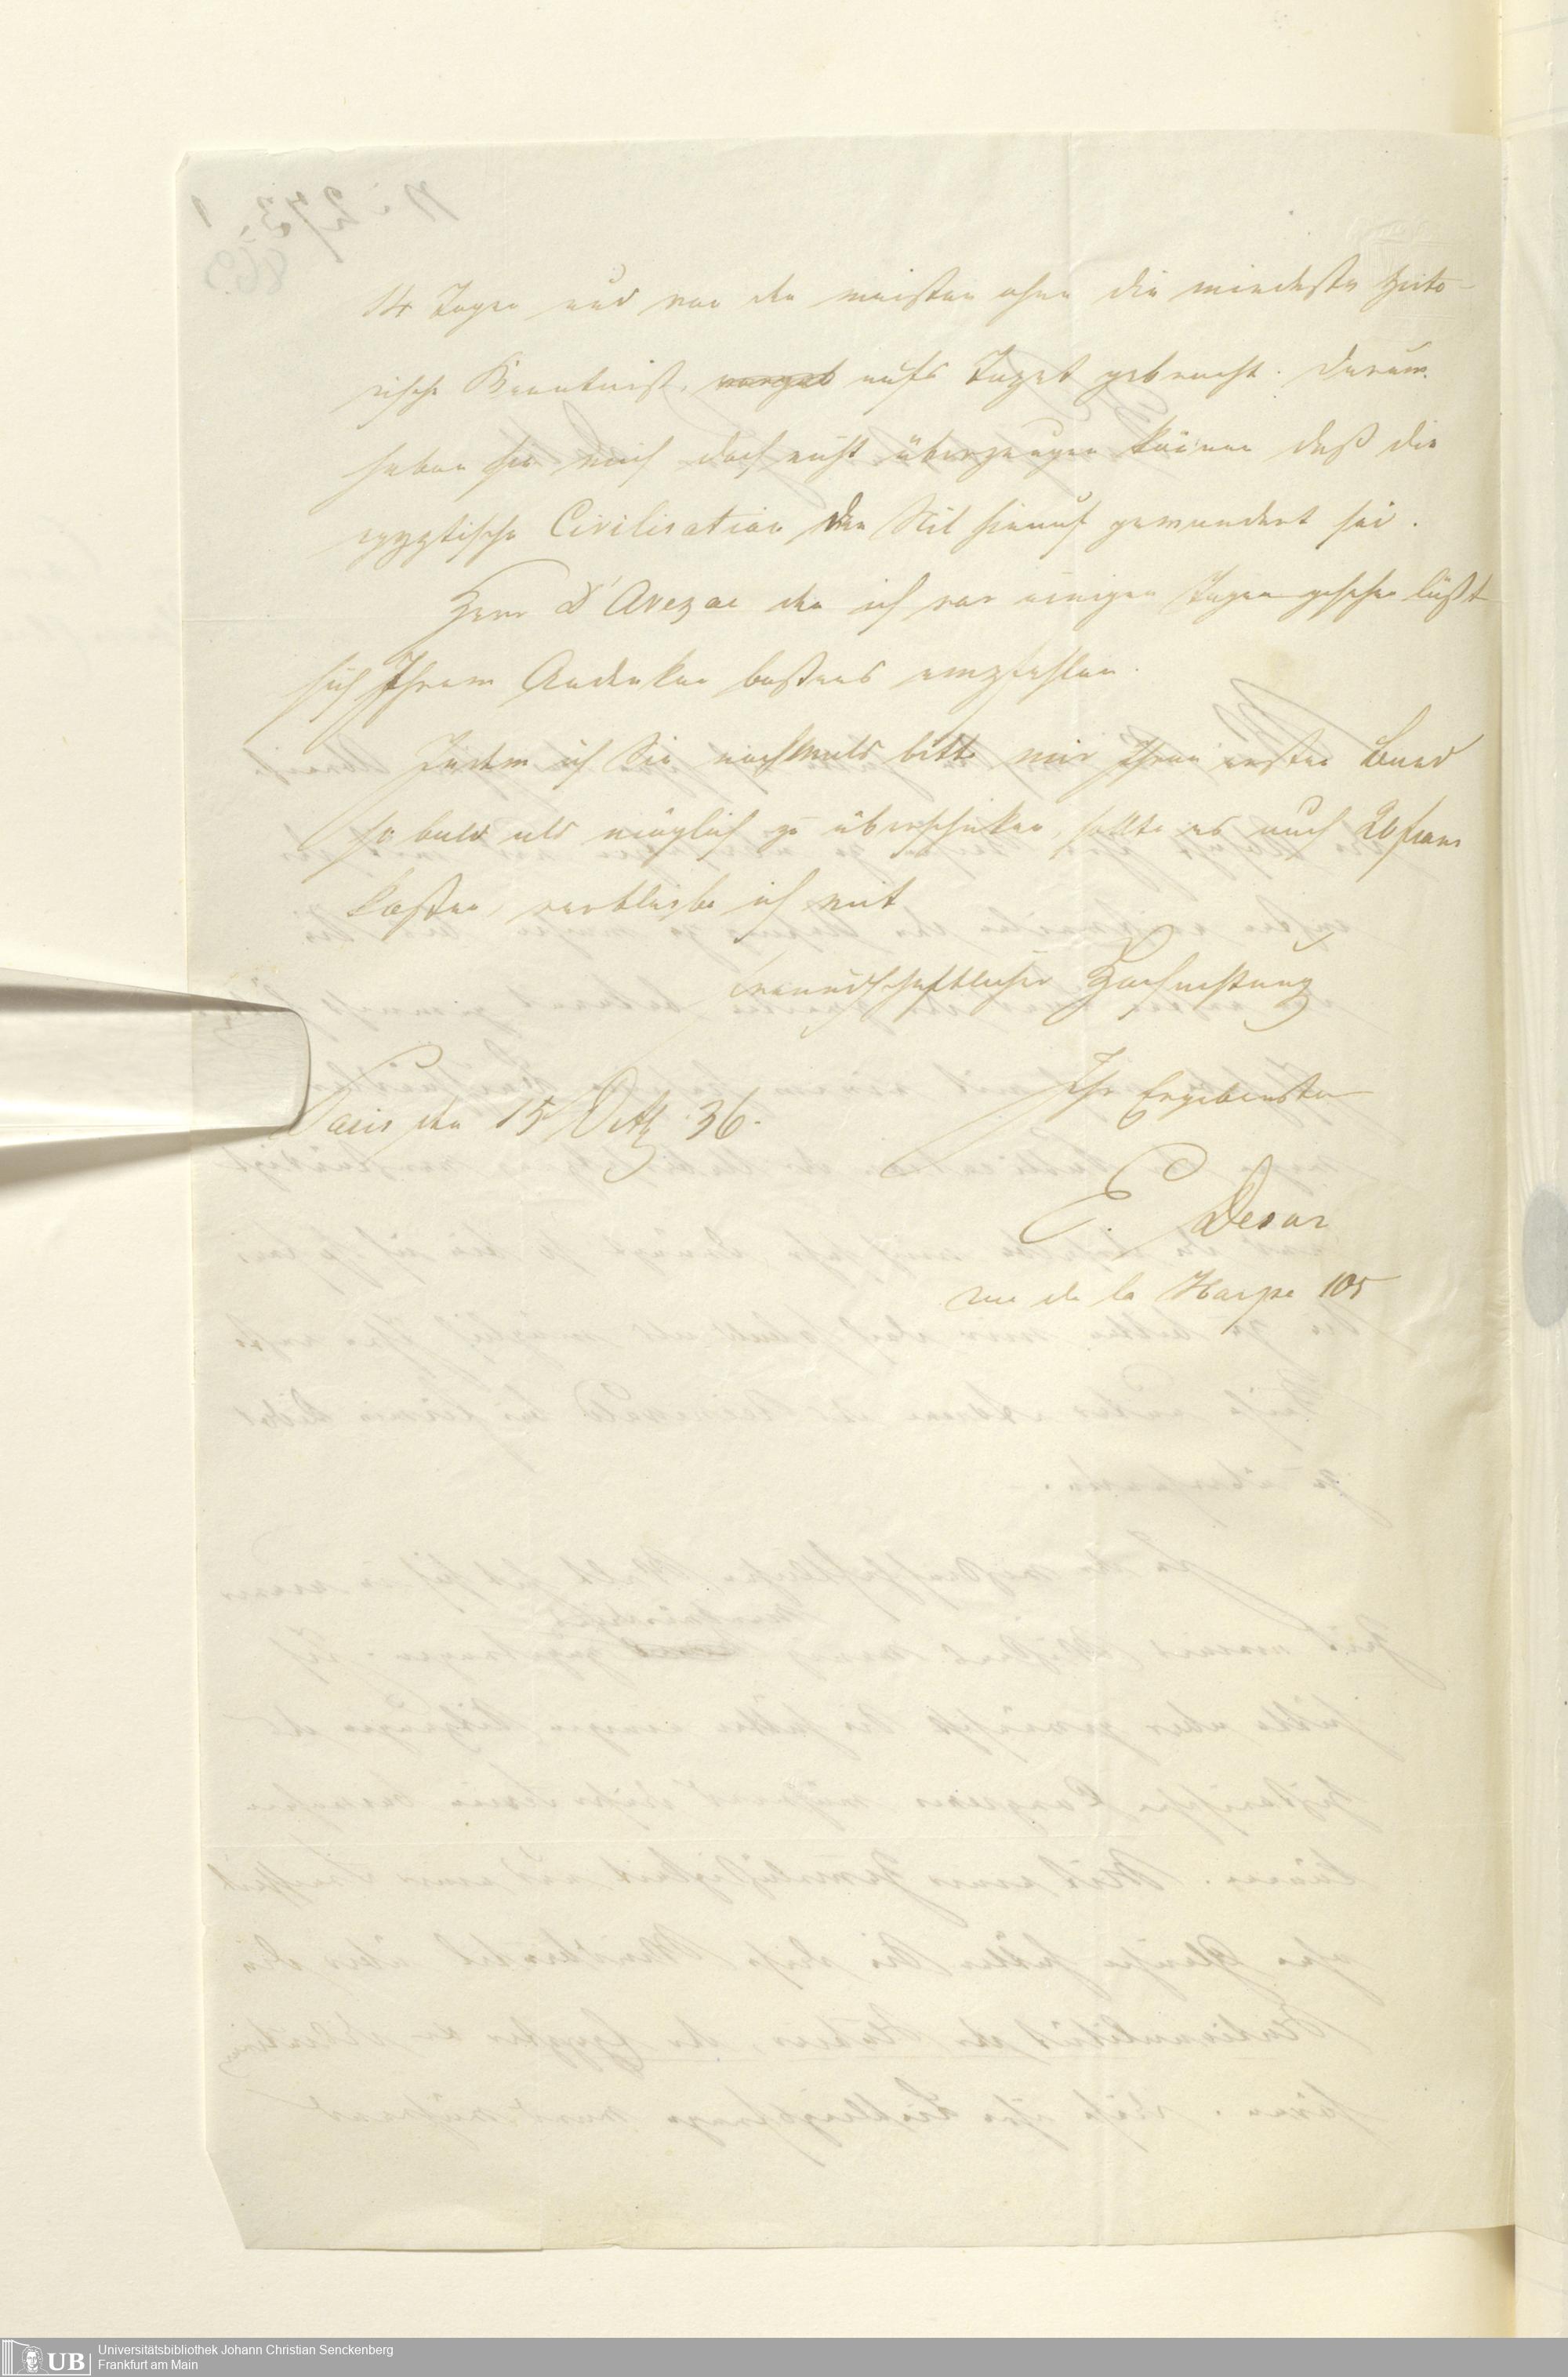 14 Tagen und von den meisten ohne die mindeste histo-
rische Kenntniß, aufs Tapet gebracht. Darum
haben sie mich doch nicht überzeugen können daß die
egyptische Civilisation den Nil hinauf gewandert sei.
Herr D'Avezac den ich vor einigen Tagen gesehen läßt
sich Ihrem Andenken bestens empfehlen.
Indem ich Sie nochmals bitte mir Ihren ersten Band
so bald als möglich zu überschicken, sollte es auch 20 francs
kosten, verbleibe ich mit
freundschaftlicher Hochachtung
Ihr Ergebenster
Paris den 15 36.
E.
rue de la Harpe 105
Universitätsbibliothek Johann Christian Senckenberg
Frankfurt am Main
UB